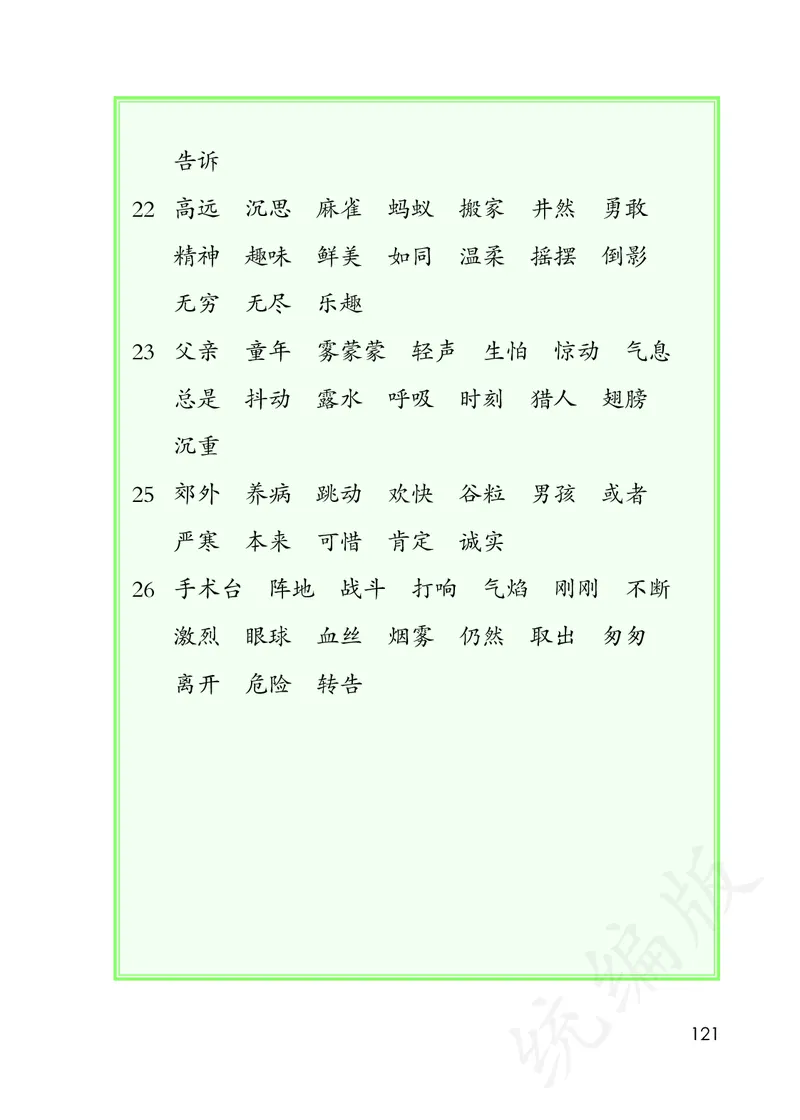 告诉
22 高远 沉思 麻雀 蚂蚁 搬家 井然 勇敢
精神 趣味 鲜美 如同 温柔 摇摆 倒影
无穷 无尽 乐趣
23 父亲 童年 雾蒙蒙 轻声 生怕 惊动 气息
总是 抖动 露水 呼吸 时刻 猎人 翅膀
沉重
25 郊外 养病 跳动 欢快 谷粒 男孩 或者
严寒 本来 可惜 肯定 诚实
26 手术台 阵地 战斗 打响 气焰 刚刚 不断
激烈 眼球 血丝 烟雾 仍然 取出 匆匆
离开 危险 转告
统编版
121